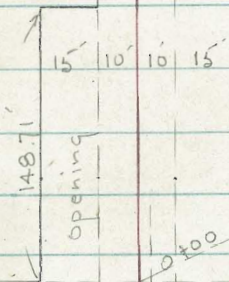 15' 10' 10' 15'
148.71'
opening
0+00